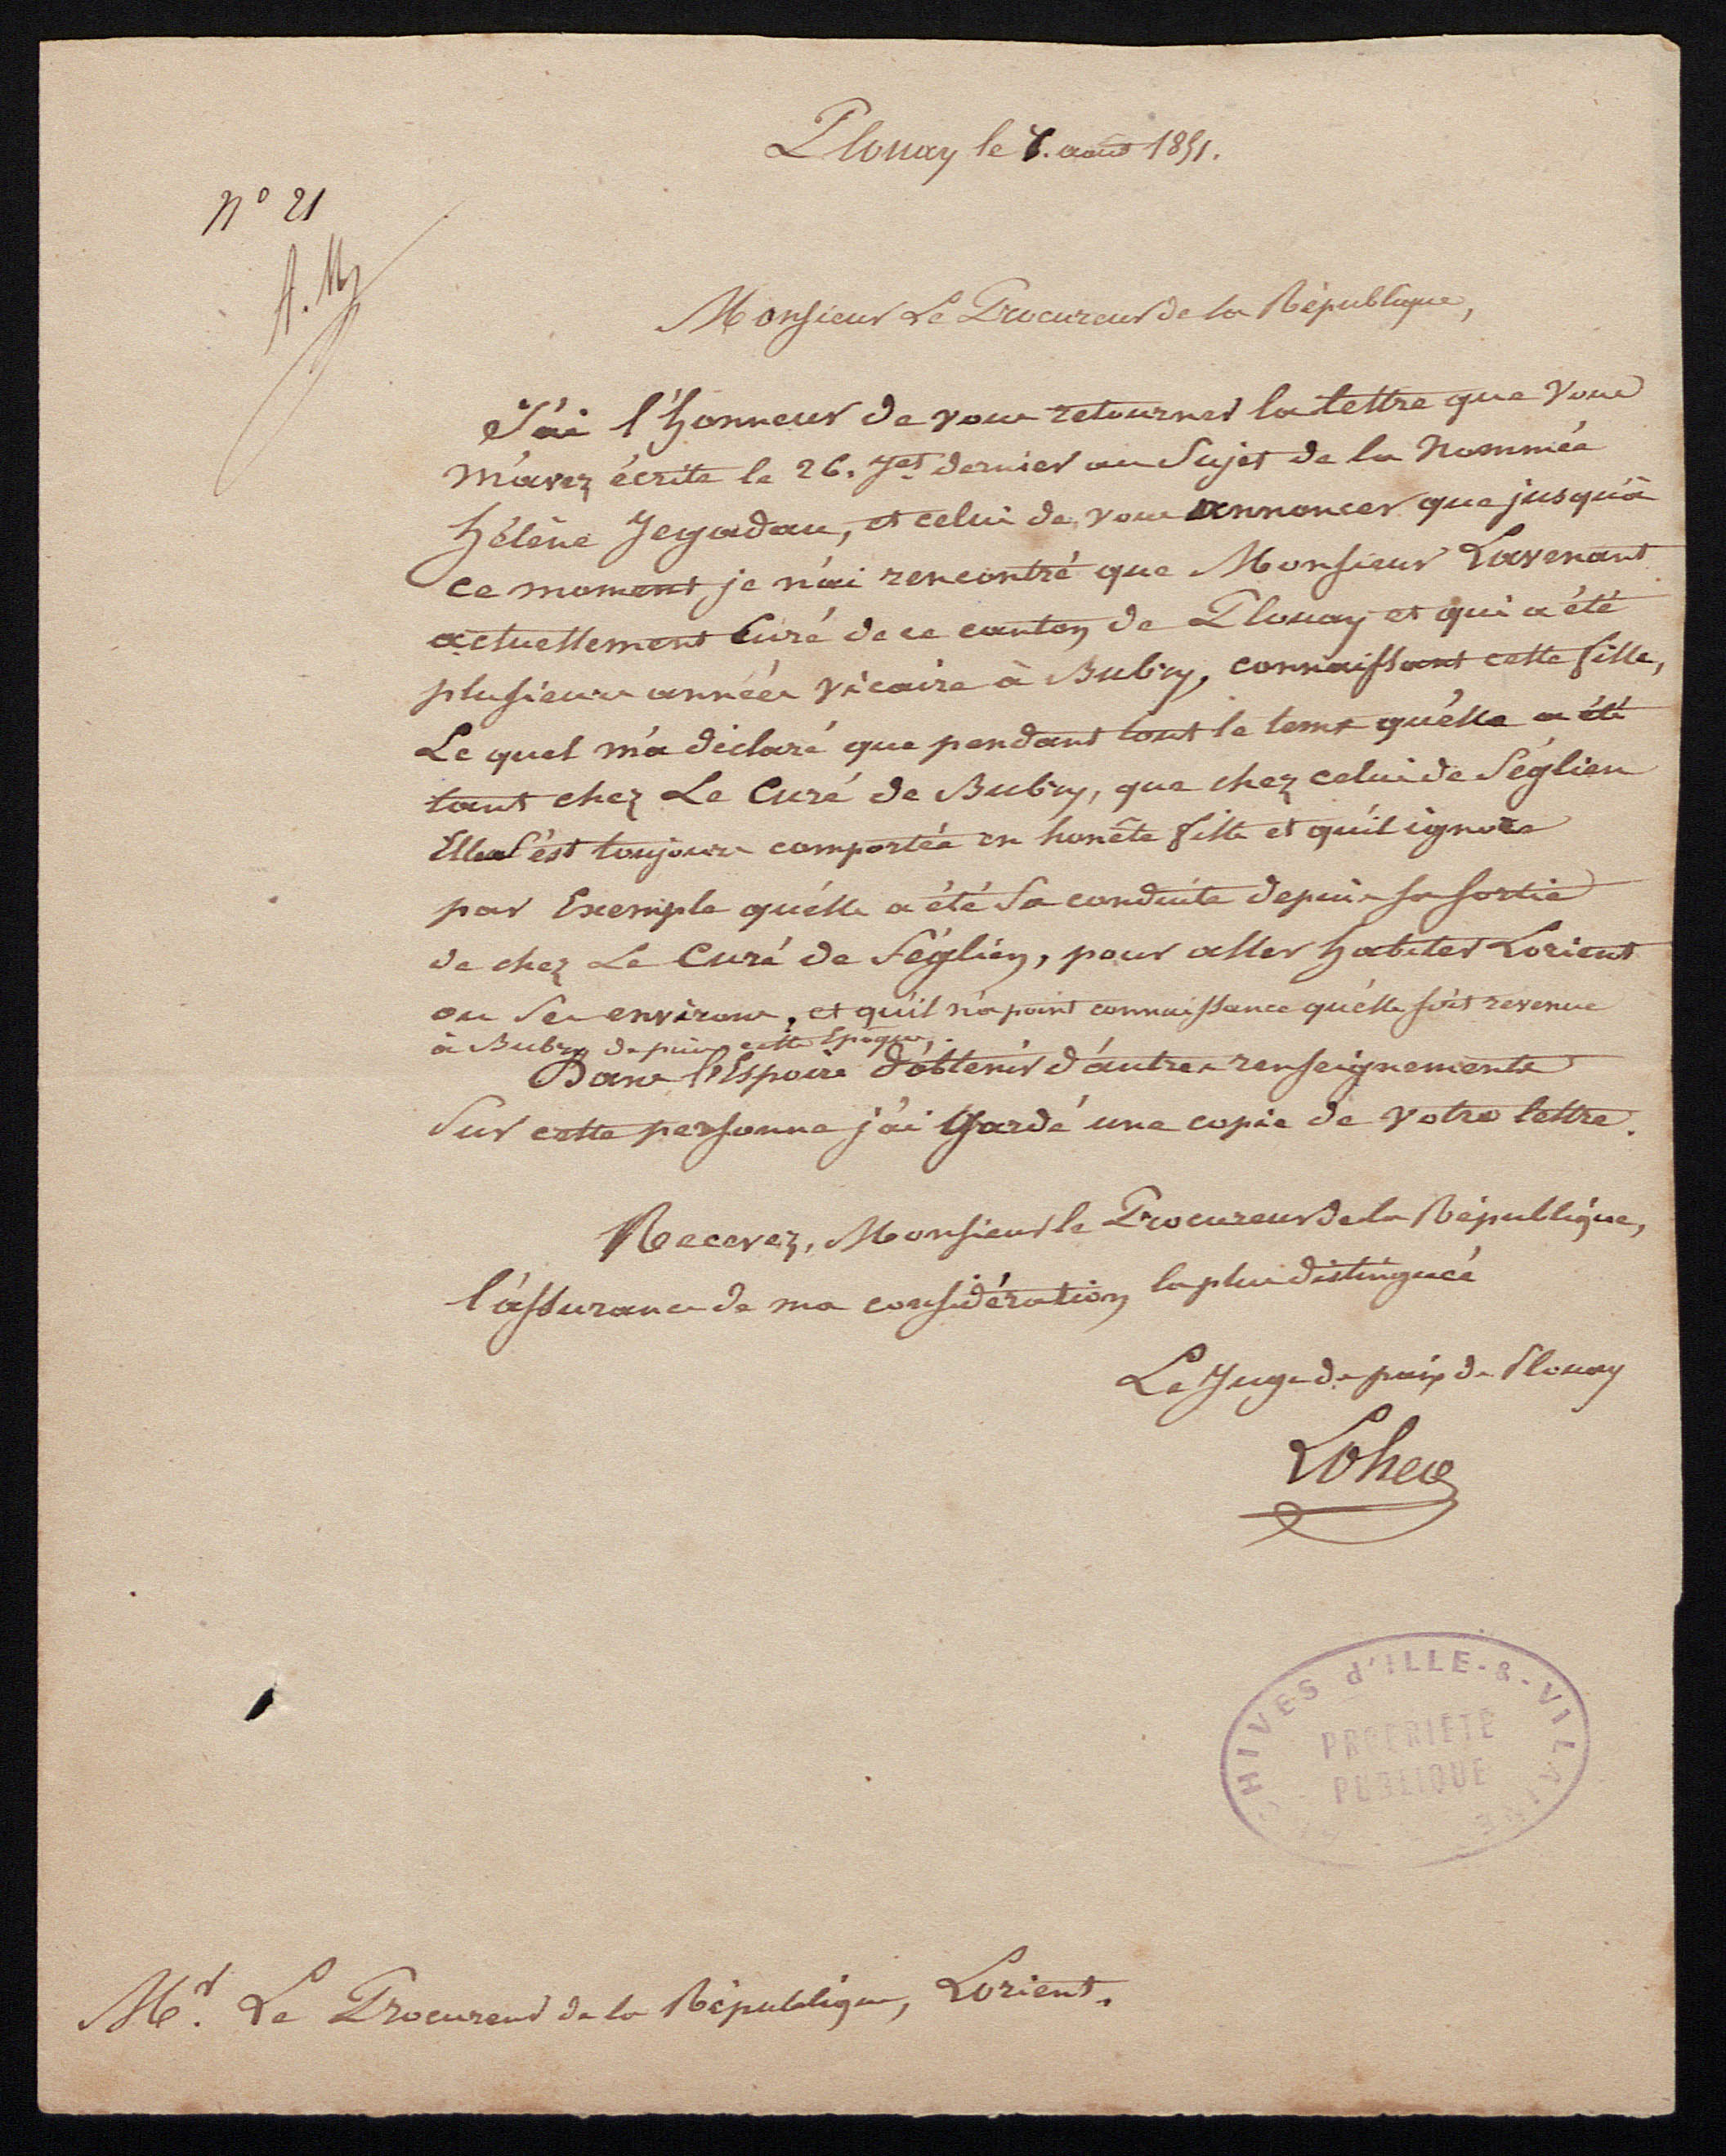 Plouay le 7. aout 1851.
N° 21
Monsieur Le Procureur de la République,
J'ai l'honneur de vous retourner la lettre que vous
m'avez écrite le 26. Jet dernier au Sujet de la nommée
hélène Jegadau, et celui de vous annoncer que jusqu'à
ce moment je n'ai rencontré que Monsieur Lavenant
actuellement Curé de ce canton de Plouay et qui a été
plusieurs années vicaire à Bubry, connaissant cette fille,
Le quel m'a déclaré que pendant tout le tems qu'elle a été
tant chez Le Curé de Bubry, que chez celui de Séglien
Elle S'est toujours comportée en honête fille et qu'il ignore
par Exemple qu'elle a été Sa conduite depuis sa sortie
de chez Le Curé de Séglien, pour aller habiter Lorient
ou Ses environs, et qu'il n'a point connaissance qu'elle soit revenue
à Bubry depuis cette Epoque,
Dans l'Espoire d'obtenir d'autres renseignements
Sur cette personne j'ai Gardé une copie de votre lettre.
Recevez, Monsieur le Procureur de la République,
l'assurance de ma considération la plus distinguée
Le Juge de paix de Plouay
ARCHIVES d'ILLE-&-VILAINE
PROPRIETE
PUBLIQUE
Mr. Le Procureur de la République, Lorient.